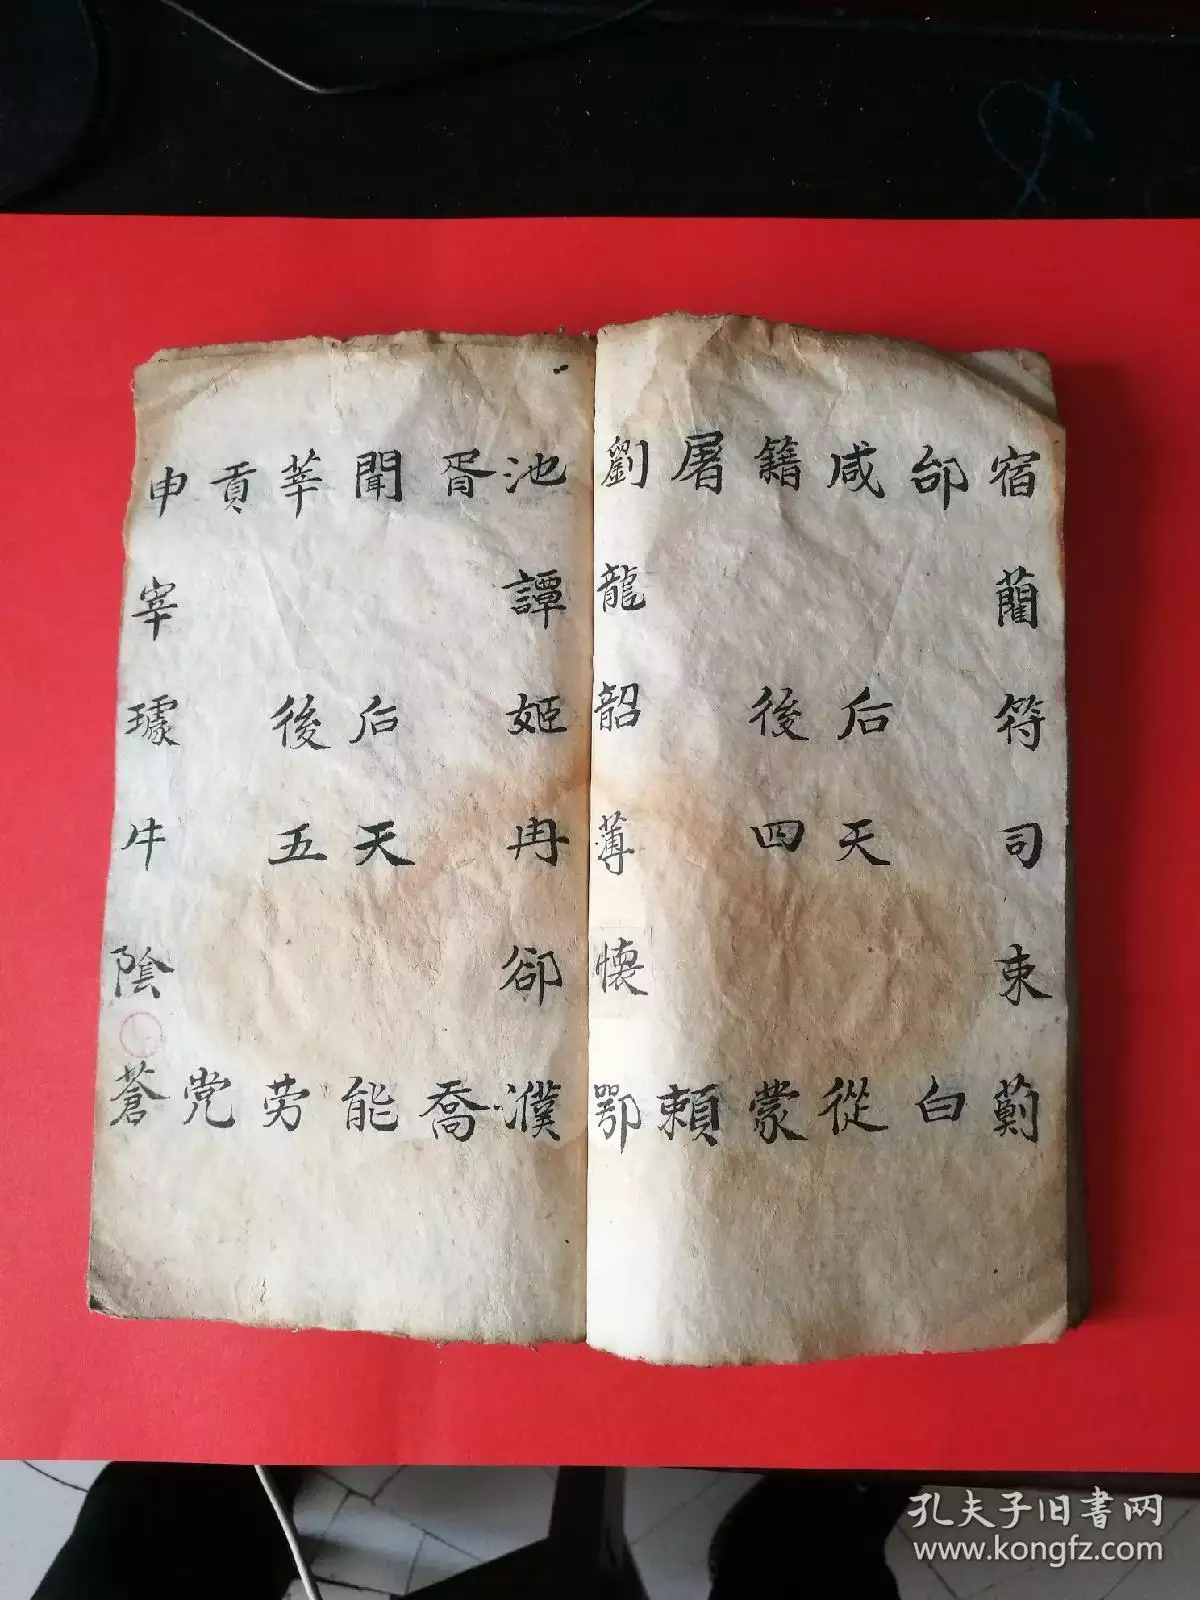 宿藺符司束薊
邰白
咸后天從
籍後四蒙
屠頼
劉龍韶薄懷鄂
池譚姬冉郤濮
胥喬
聞后天能
莘後五劳
貢党
申宰璩牛陰蒼
孔夫子旧书网
www.kongfz.com